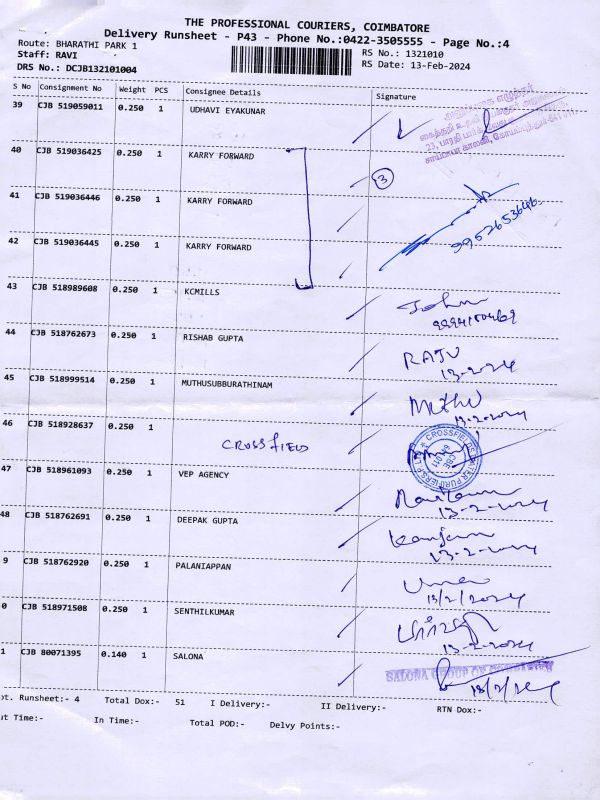 THE PROFESSIONAL COURIERS, COIMBATORE
Delivery Runsheet - P43 - Phone No.:0422-3505555 - Page No.:4
Route: BHARATHI PARK 1 RS No.: 1321010
Staff: RAVI RS Date: 13-Feb-2024
DRS No.: DCJB132101004
S No Consignment No Weight PCS Consignee Details Signature
39 CJB 519059011 0.250 1 UDHAVI EYAKUNAR
40 CJB 519036425 0.250 1 KARRY FORWARD
3
41 CJB 519036446 0.250 1 KARRY FORWARD
42 CJB 519036445 0.250 1 KARRY FORWARD
43 CJB 518989608 0.250 1 KCMILLS John
44 CJB 518762673 0.250 1 RISHAB GUPTA RAJU
13-2-2024
45 CJB 518999514 0.250 1 MUTHUSUBBURATHINAM Muthu
13-2-2024
46 CJB 518928637 0.250 1 CROSSFIELD
47 CJB 518961093 0.250 1 VEP AGENCY
13-2-2024
48 CJB 518762691 0.250 1 DEEPAK GUPTA
13-2-2024
9 CJB 518762920 0.250 1 PALANIAPPAN
13/2/2024
0 CJB 518971508 0.250 1 SENTHILKUMAR
13-2-2024
1 CJB 80071395 0.140 1 SALONA SALONA GROUP OF
13/2/2024
pt. Runsheet:- 4 Total Dox:- 51 I Delivery:- II Delivery:- RTN Dox:-
ut Time:- In Time:- Total POD:- Delvy Points:-